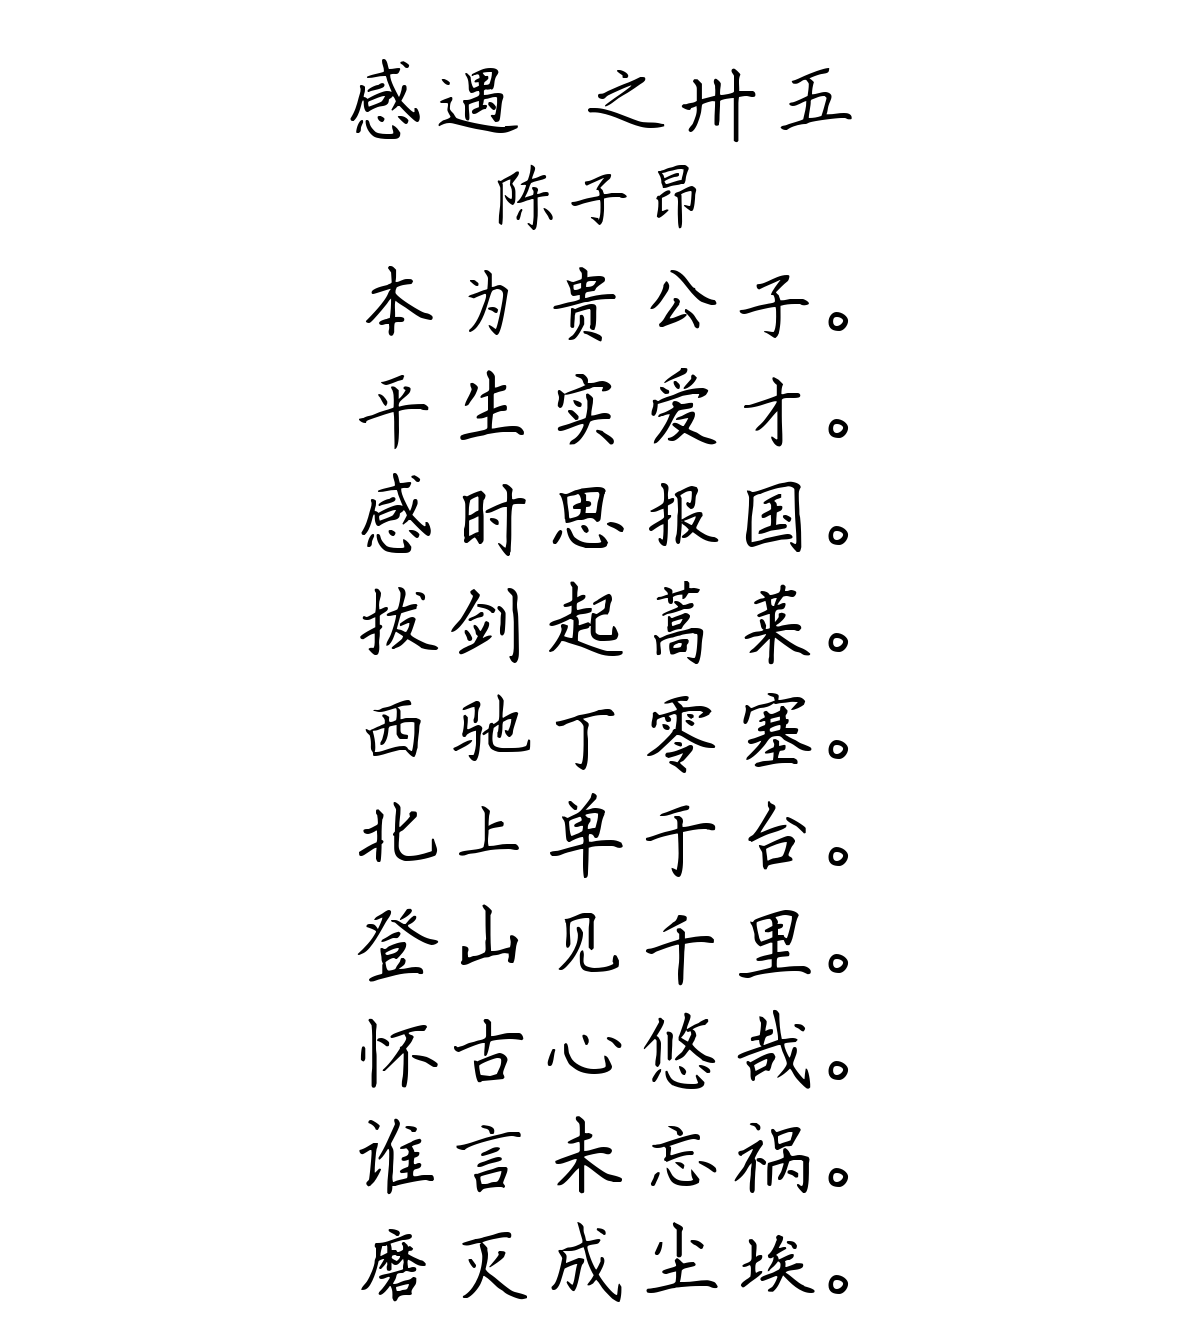 感遇 之卅五
陈子昂
本为贵公子。
平生实爱才。
感时思报国。
拔剑起蒿莱。
西驰丁零塞。
北上单于台。
登山见千里。
怀古心悠哉。
谁言未忘祸。
磨灭成尘埃。